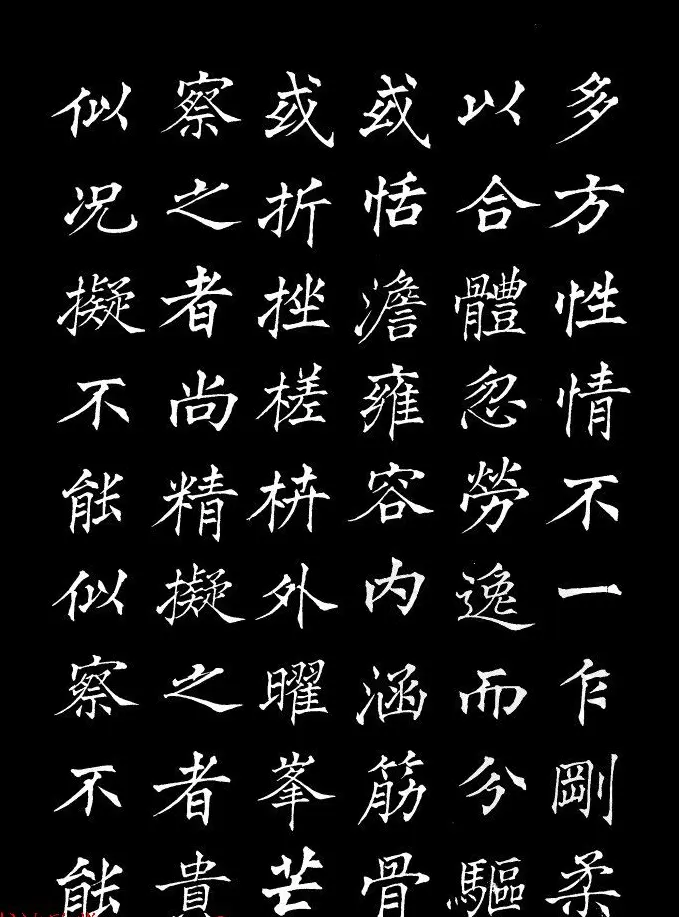 多方性情不一乍剛柔
以合體忽勞逸而分驅
或恬澹雍容内涵筋骨
或折挫槎枿外曜峯芒
察之者尚精擬之者貴
似况擬不能似察不能